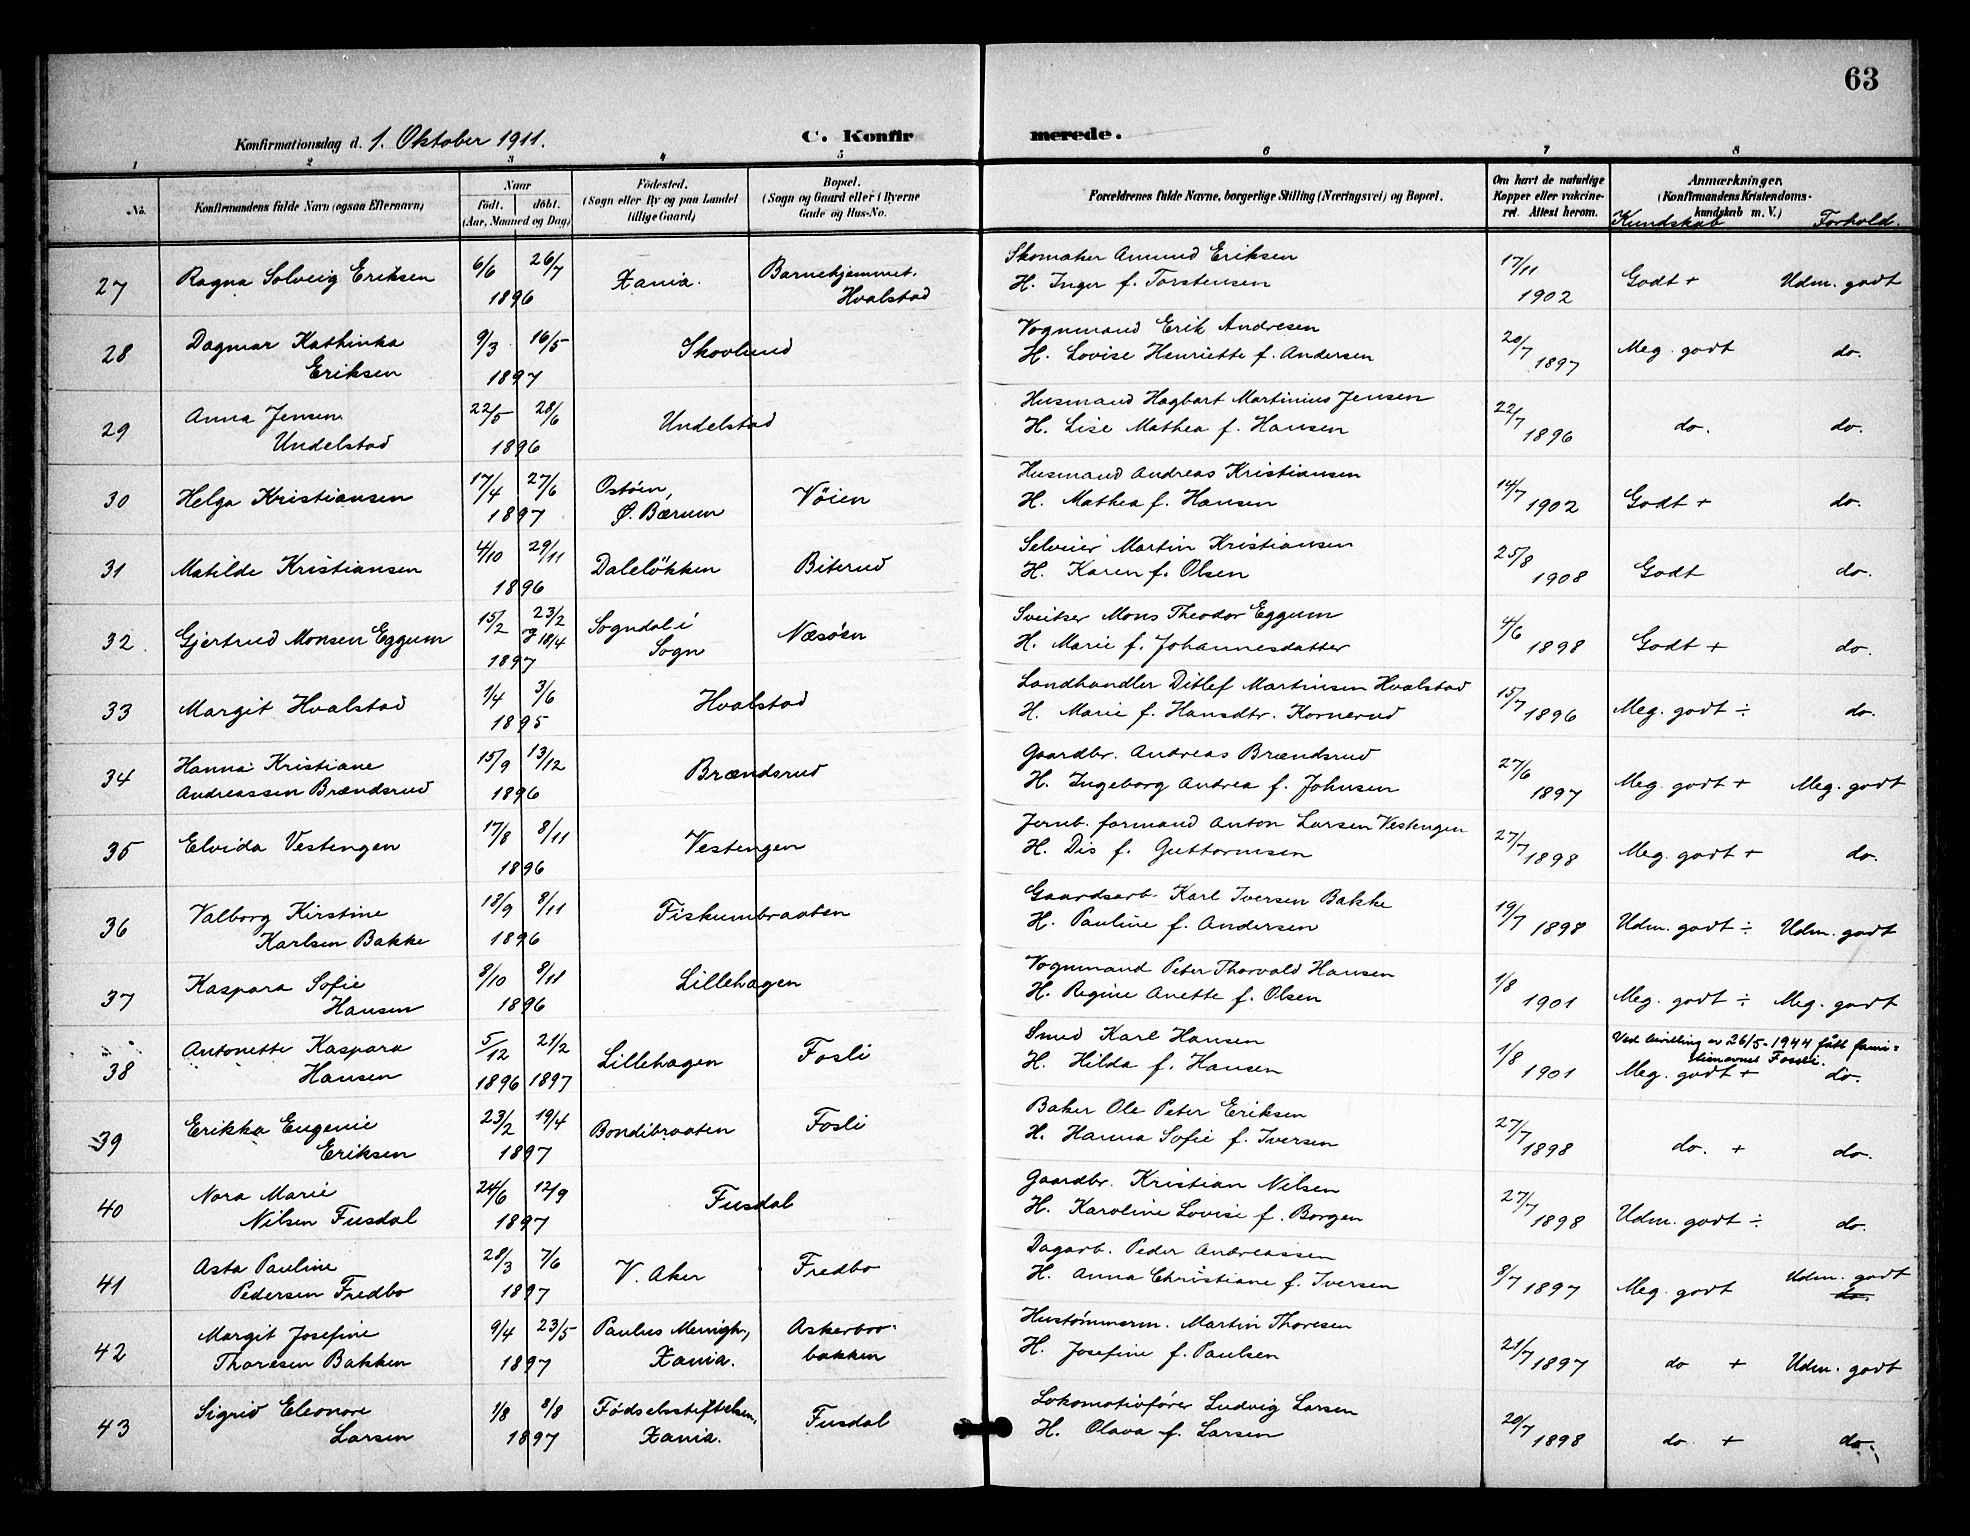 63
Konfirmationsdag d. 1. Oktober 1911. C. Konfir merede.
1 2 3 4 5 6 7 8
No. Konfirmandens fulde Navn (ogsaa Efternavn)
Naar
födt. döbt.
(Aar, Maaned og Dag)
Födested.
(Sogn eller By og paa Landet
tillige Gaard)
Bopæl.
(Sogn og Gaard eller i Byerne
Gade og Hus-No.
Forældrenes fulde Navne, borgerlige Stilling (Næringsvei) og Bopæl.
Om havt de naturlige
Kopper eller vakcine-
ret. Attest herom.
Anmærkninger,
(Konfirmandens Kristendoms-
kundskab m. V.)
Kundskab Forhold.
27 Ragna Solveig Eriksen 6/6 26/7 1896 Xania. Barnehjemmet. Hvalstad
Skomaker Amund Eriksen
H. Inger f. Torstensen
17/11 1902 Godt + Udm. godt
28 Dagmar Kathinka
Eriksen
9/3 16/5 1897 Skovlund
Vognmand Erik Andresen
H. Lovise Henriette f. Andersen
20/7 1897 Meg. godt do.
29 Anna Jensen
Undelstad
22/5 28/6 1896 Undelstad
Husmand Hagbart Martinius Jensen
H. Lise Mathea f. Hansen
22/7 1896 do. do.
30 Helga Kristiansen 17/4 27/6 1897 Ostöen, Ø. Bærum Vöien
Husmand Andreas Kristiansen
H. Mathea f. Hansen
14/7 1902 Godt + do.
31 Matilde Kristiansen 4/10 29/11 1896 Dalelökken Biterud
Selveier Martin Kristiansen
H. Karen f. Olsen
25/8 1908 Godt do.
32 Gjertrud Monsen Eggum 15/2 23/2 og 18/4 1897 Sogndal i Sogn Næsöen
Sveitser Mons Theodor Eggum
H. Marie f. Johannesdatter
4/6 1898 Godt + do.
33 Margit Hvalstad 1/4 3/6 1895 Hvalstad
Landhandler Ditlef Martinsen Hvalstad
H. Marie f. Hansdtr. Kornerud
15/7 1896 Meg. godt ÷ do.
34 Hanna Kristiane
Andreassen Brændsrud
15/9 13/12 1896 Brændsrud
Gaardbr. Andreas Brændsrud
H. Ingeborg Andrea f. Johnsen
27/6 1897 Meg. godt + Meg. godt
35 Elvida Vestengen 17/8 8/11 1896 Vestengen
Jernb. formand Anton Larsen Vestengen
H. Dis f. Guttormsen
27/7 1898 Meg. godt + do.
36 Valborg Kirstine
Karlsen Bakke
18/9 8/11 1896 Fiskumbraaten
Gaardsarb. Karl Iversen Bakke
H. Pauline f. Andersen
19/7 1898 Udm. godt ÷ Udm. godt
37 Kaspara Sofie
Hansen
8/10 8/11 1896 Lillehagen
Vognmand Peter Thorvald Hansen
H. Regine Anette f. Olsen
1/8 1901 Meg. godt ÷ Meg. godt
38 Antonette Kaspara
Hansen
5/12 21/2 1896 1897 Lillehagen Fosli
Smed Karl Hansen
H. Hilda f. Hansen
1/8 1901
Ved bevilling av 26/5-1944 fått fami-
lienavnet Fossli.
Meg. godt + do.
39 Erikka Eugenie
Eriksen
23/2 19/4 1897 Bondibraaten Fosli
Baker Ole Peter Eriksen
H. Hanna Sofie f. Iversen
27/7 1898 do. + do.
40 Nora Marie
Nilsen Fusdal
24/6 12/9 1897 Fusdal
Gaardbr. Kristian Nilsen
H. Karoline Lovise f. Borgen
27/7 1898 Udm. godt ÷ do.
41 Asta Pauline
Pedersen Fredbo
28/3 7/6 1897 V. Aker Fredbo
Dagarb. Peder Andreassen
H. Anna Christiane f. Iversen
8/7 1897 Meg. godt Udm. godt
do.
42 Margit Josefine
Thoresen Bakken
9/4 23/5 1897 Paulus Menigh., Xania. Askerbro-bakken
Hustömmerm. Martin Thoresen
H. Josefine f. Paulsen
21/7 1897 do + Udm. godt
43 Sigrid Eleonore
Larsen
1/8 8/8 1897 Födselsstiftelsen, Xania. Fusdal
Lokomotivförer Ludvig Larsen
H. Olava f. Larsen
20/7 1898 do. + do.